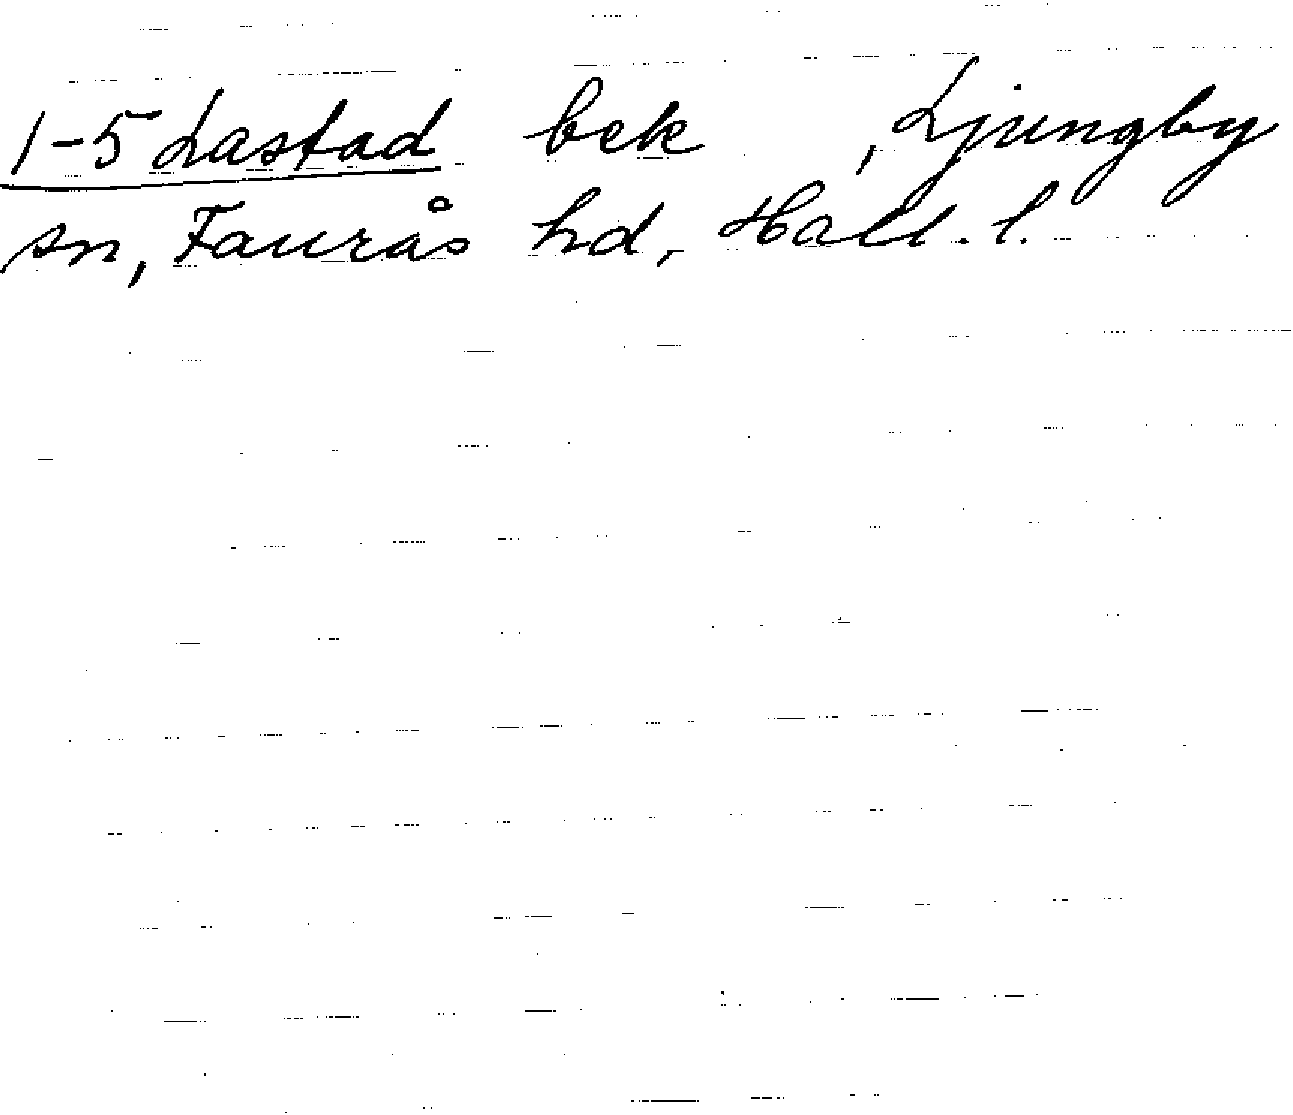 1-5 Lastad bek , Ljungby
sn, Faurås hd, Hall. l.